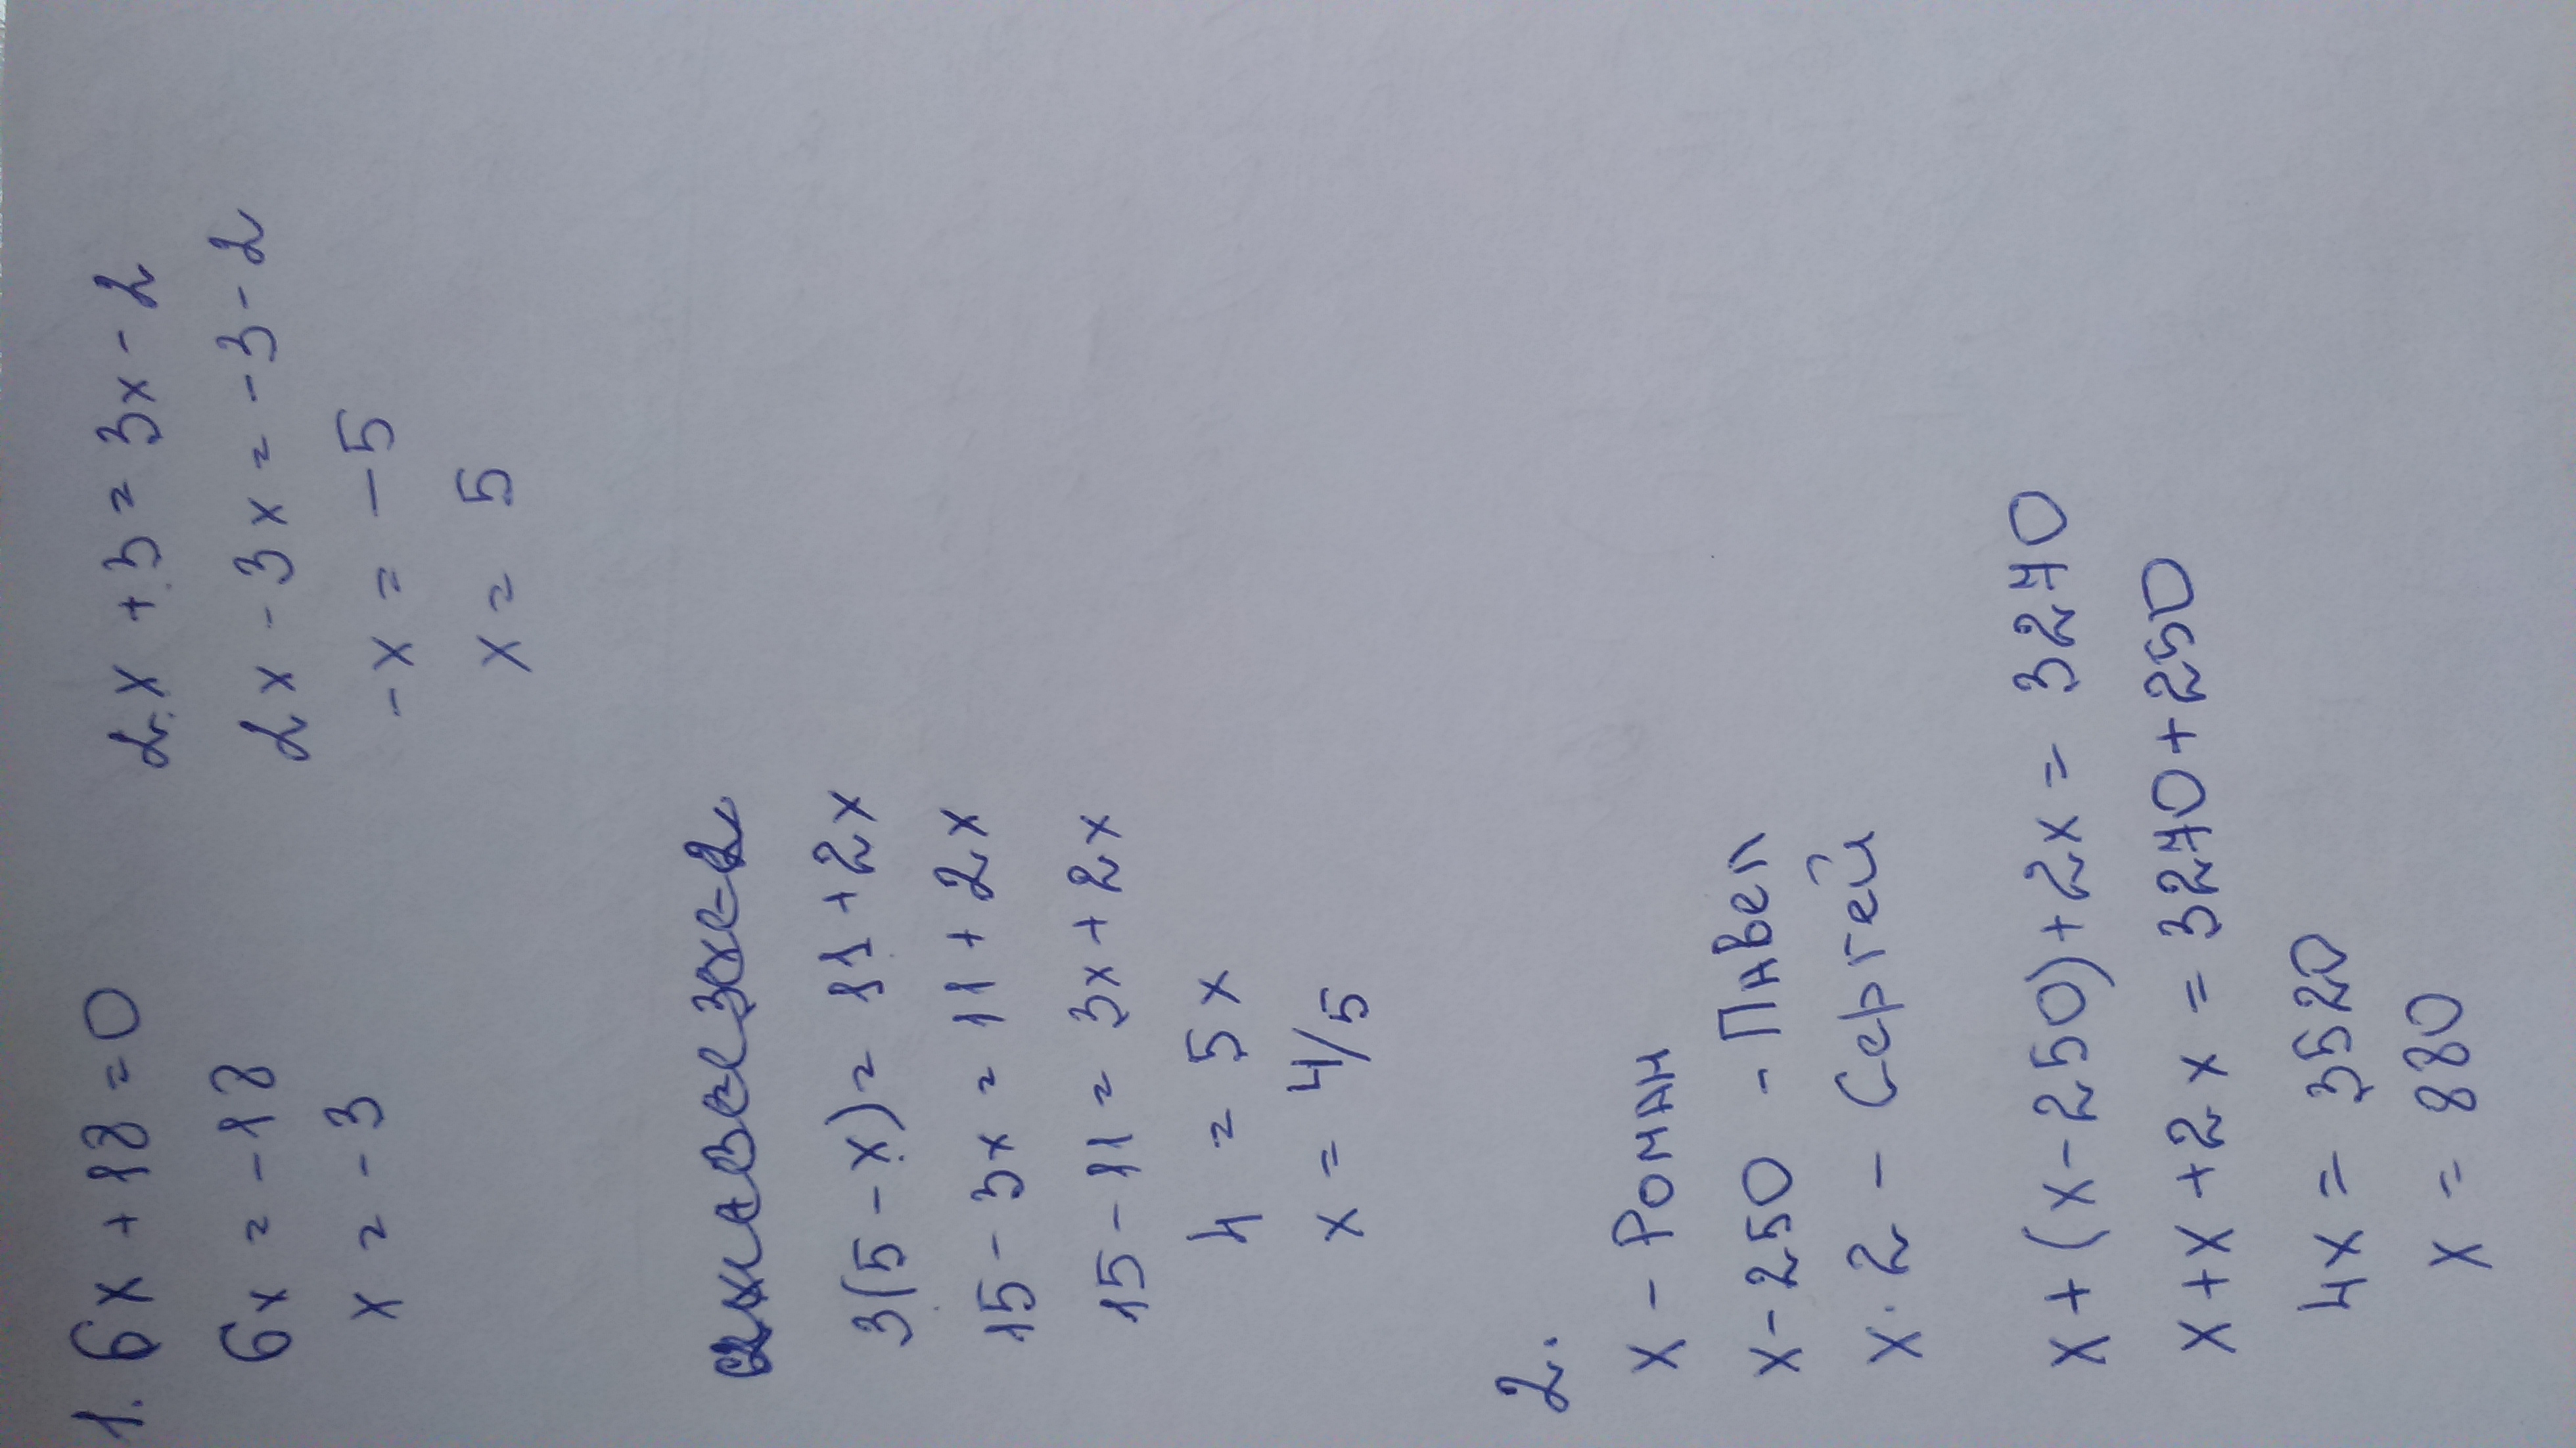 1. 6x + 18 = 0
6x = -18
x = -3
2x + 3 = 3x - 2
2x - 3x = -3 - 2
-x = -5
x = 5
3(5 - x) = 11 + 2x
15 - 3x = 11 + 2x
15 - 11 = 3x + 2x
4 = 5x
x = 4/5
2.
x - Роман
x - 250 - Павел
x · 2 - Сергей
x + (x - 250) + 2x = 3270
x + x + 2x = 3270 + 250
4x = 3520
x = 880